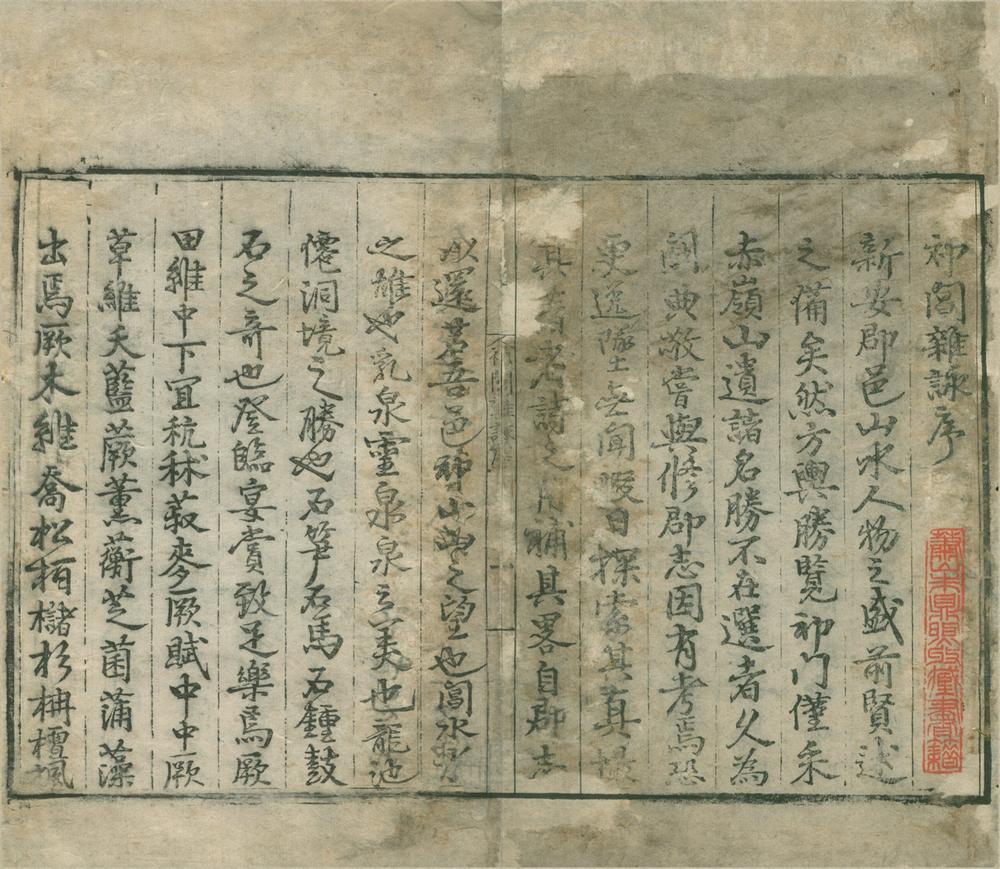 祁閶雜詠序
新安郡邑山水人物之盛前賢述
之備矣然方輿勝覽祁門僅采
赤嶺山遺諸名勝不在選者久為
闕典敬嘗與修郡志因有考焉恐
更遂墜無聞暇日探索其真
其 老詩之 補其畧自郡志
以還其吾邑祁山 之望也閶水
之雄也乳泉靈泉泉之美也龍池
僊洞境之勝也石筍石馬石鍾鼓
石之奇也登臨宴賞致足樂焉厥
田維中下宜秔秫菽麥厥賦中中厥
草維夭藍蕨薰蘅芝菌蒲藻
出焉厥木維喬松栢櫧杉柟檀楓
蕭山朱鼎煦收藏書籍